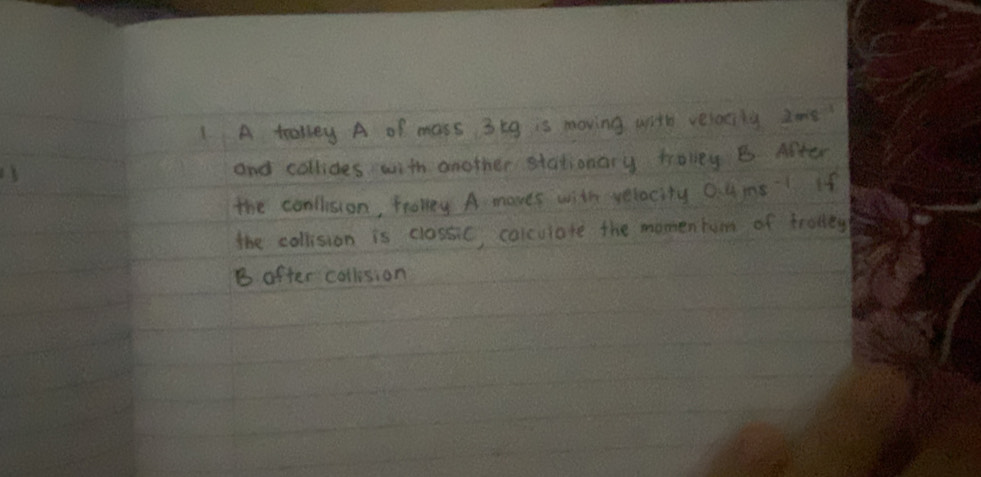 1 A trolley A of mass 3 kg is moving with velocity 2ms⁻¹
and collides with another stationary trolley B After
the conllision, trolley A moves with velocity 0.4 ms⁻¹ If
the collision is classic, calculate the momentum of trolley
B after collision